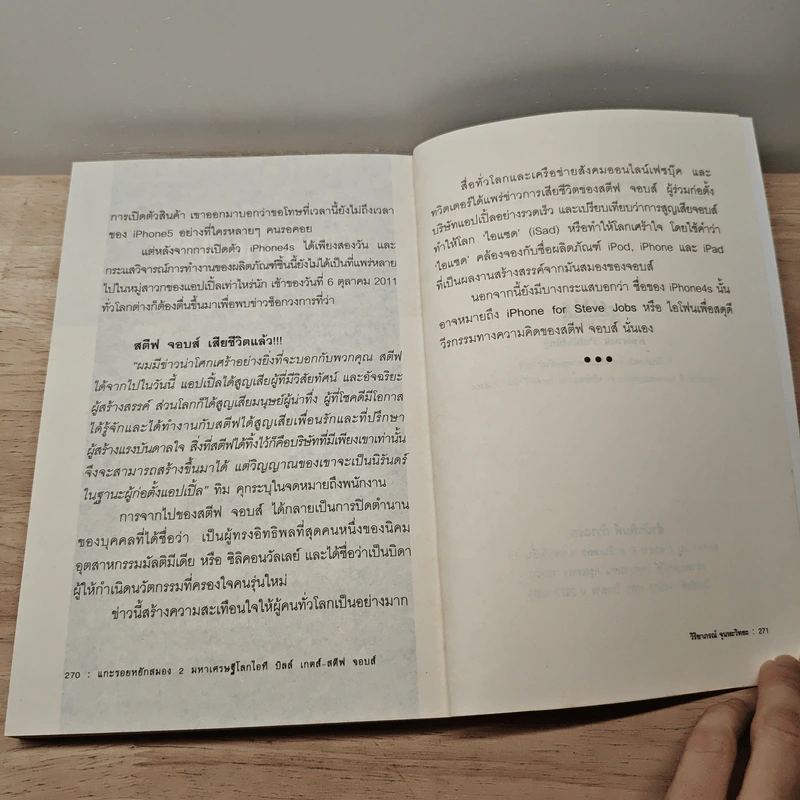 การเปิดตัวสินค้า เขาออกมาบอกว่าขอโทษที่เวลานี้ยังไม่ถึงเวลา
ของ iPhone5 อย่างที่ใครหลายๆ คนรอคอย
แต่หลังจากการเปิดตัว iPhone4s ได้เพียงสองวัน และ
กระแสวิจารณ์การทำงานของผลิตภัณฑ์ชิ้นนี้ยังไม่ได้เป็นที่แพร่หลาย
ไปในหมู่สาวกของแอปเปิ้ลเท่าไหร่นัก เช้าของวันที่ 6 ตุลาคม 2011
ทั่วโลกต่างก็ต้องตื่นขึ้นมาเพื่อพบข่าวช็อกวงการที่ว่า
สตีฟ จอบส์ เสียชีวิตแล้ว!!!
"ผมมีข่าวน่าโศกเศร้าอย่างยิ่งที่จะบอกกับพวกคุณ สตีฟ
ได้จากไปในวันนี้ แอปเปิ้ลได้สูญเสียผู้ที่มีวิสัยทัศน์ และอัจฉริยะ
ผู้สร้างสรรค์ ส่วนโลกก็ได้สูญเสียมนุษย์ผู้น่าทึ่ง ผู้ที่โชคดีมีโอกาส
ได้รู้จักและได้ทำงานกับสตีฟได้สูญเสียเพื่อนรักและที่ปรึกษา
ผู้สร้างแรงบันดาลใจ สิ่งที่สตีฟได้ทิ้งไว้ก็คือบริษัทที่มีเพียงเขาเท่านั้น
จึงจะสามารถสร้างขึ้นมาได้ แต่วิญญาณของเขาจะเป็นนิรันดร์
ในฐานะผู้ก่อตั้งแอปเปิ้ล" ทิม คุกระบุในจดหมายถึงพนักงาน
การจากไปของสตีฟ จอบส์ ได้กลายเป็นการปิดตำนาน
ของบุคคลที่ได้ชื่อว่า เป็นผู้ทรงอิทธิพลที่สุดคนหนึ่งของนิคม
อุตสาหกรรมมัลติมีเดีย หรือ ซิลิคอนวัลเลย์ และได้ชื่อว่าเป็นบิดา
ผู้ให้กำเนิดนวัตกรรมที่ครองใจคนรุ่นใหม่
ข่าวนี้สร้างความสะเทือนใจให้ผู้คนทั่วโลกเป็นอย่างมาก
270 : แกะรอยหยักสมอง 2 มหาเศรษฐีโลกไอที บิลล์ เกตส์-สตีฟ จอบส์
สื่อทั่วโลกและเครือข่ายสังคมออนไลน์เฟซบุ๊ค และ
ทวิตเตอร์ได้แพร่ข่าวการเสียชีวิตของสตีฟ จอบส์ ผู้ร่วมก่อตั้ง
บริษัทแอปเปิ้ลอย่างรวดเร็ว และเปรียบเทียบว่าการสูญเสียจอบส์
ทำให้โลก 'ไอแซด' (iSad) หรือทำให้โลกเศร้าใจ โดยใช้คำว่า
'ไอแซด' คล้องจองกับชื่อผลิตภัณฑ์ iPod, iPhone และ iPad
ที่เป็นผลงานสร้างสรรค์จากมันสมองของจอบส์
นอกจากนี้ยังมีบางกระแสบอกว่า ชื่อของ iPhone4s นั้น
อาจหมายถึง iPhone for Steve Jobs หรือ ไอโฟนเพื่อสดุดี
วีรกรรมทางความคิดของสตีฟ จอบส์ นั่นเอง
●●●
: 271